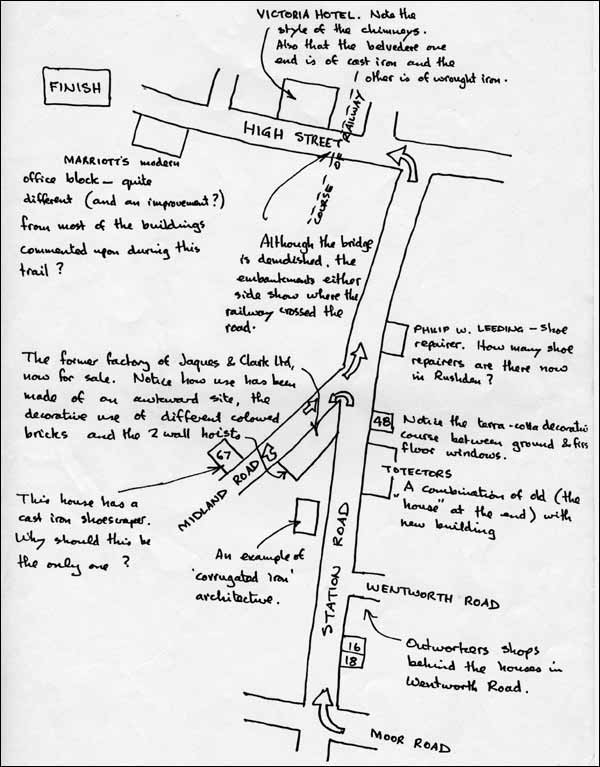 VICTORIA HOTEL. Note the
style of the chimneys.
Also that the belvedere one
end is of cast iron and the
other is of wrought iron.
FINISH
HIGH STREET
COURSE OF RAILWAY
MARRIOTT'S modern
office block — quite
different (and an improvement?)
from most of the buildings
commented upon during this
trail?
Although the bridge
is demolished, the
embankments either
side show where the
railway crossed the
road.
PHILIP W. LEEDING - Shoe
repairer. How many shoe
repairers are there now
in Rushden?
The former factory of Jaques & Clark Ltd,
now for sale. Notice how use has been
made of an awkward site, the
decorative use of different coloured
bricks and the 2 wall hoists
48
Notice the terra-cotta decorative
course between ground & firs
floor windows.
67
25
MIDLAND ROAD
TOTECTORS
A combination of old (the
"house" at the end) with
new building
This house has a
cast iron shoescraper.
Why should this be
the only one?
An example of
'corrugated iron'
architecture.
STATION ROAD
WENTWORTH ROAD
16
18
Outworkers shops
behind the houses in
Wentworth Road.
MOOR ROAD